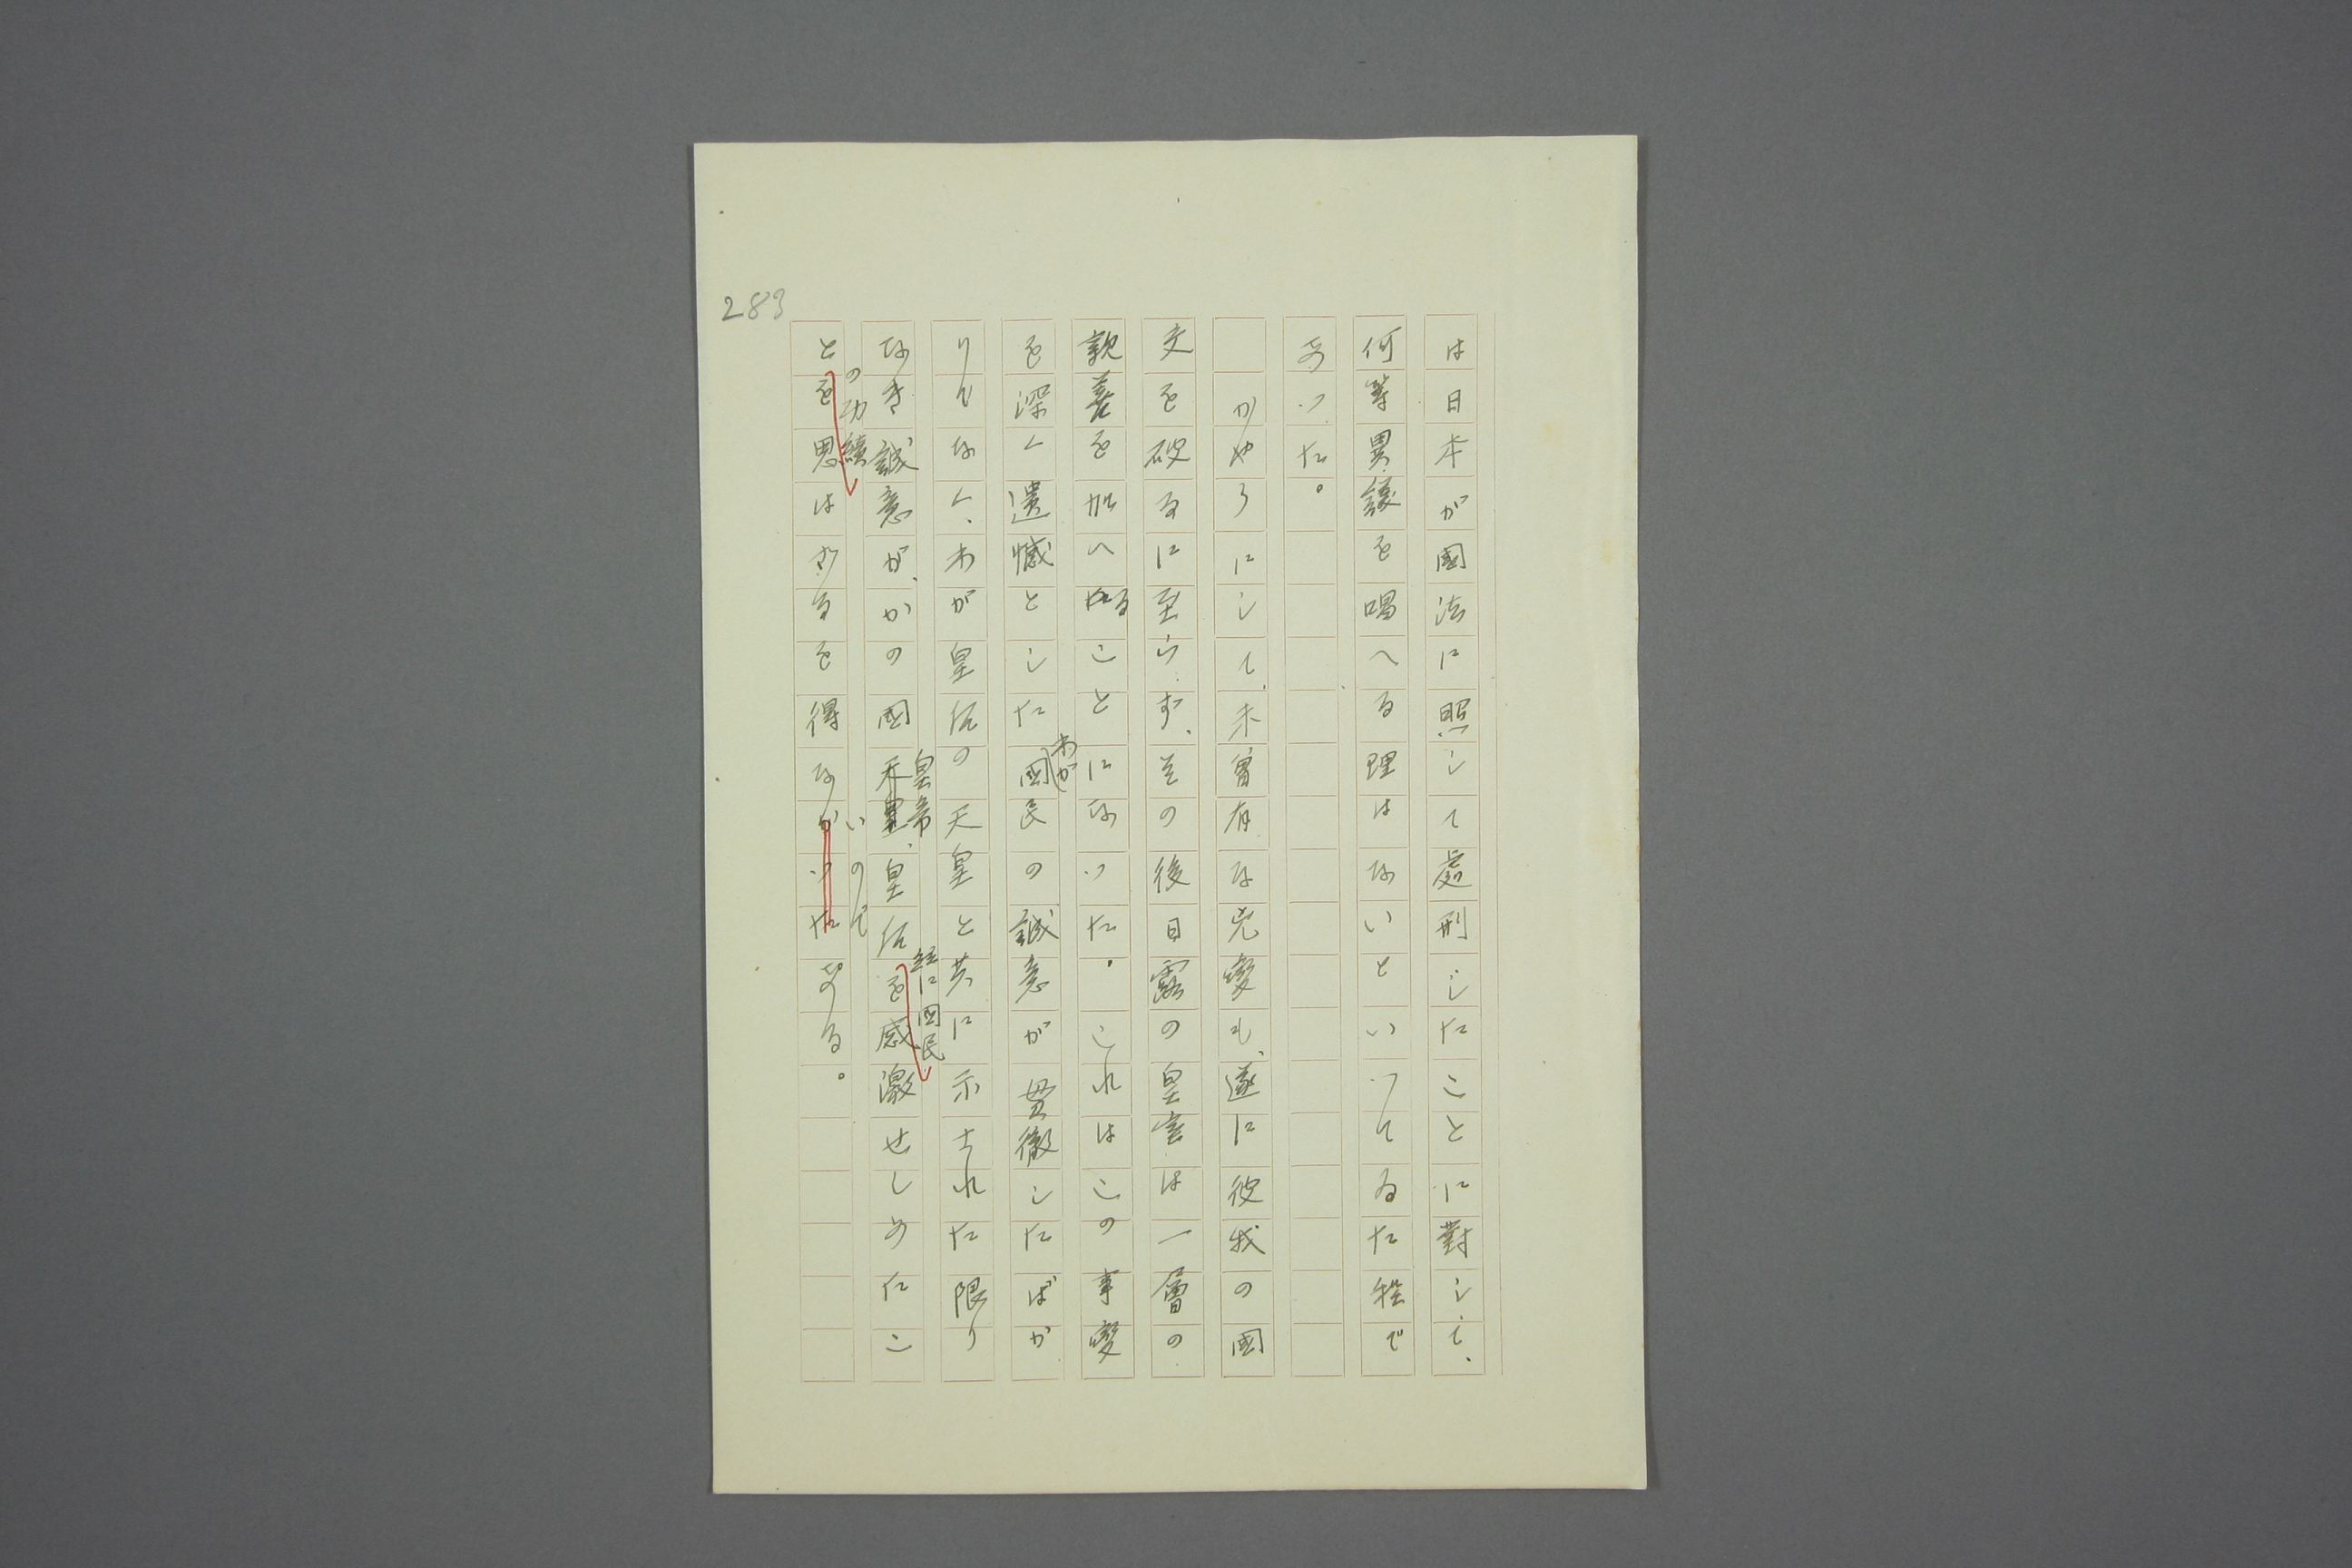 283
は日本が國法に照して處刑したことに對して、
何等異議を唱へる理はないといつてゐた程で
あつた。
かやうにして、未曾有な兇變も、遂に彼我の國
交を破るに至らず、その後日露の皇室は一層の
親善を加へることになつた。これはこの事變
を深く遺憾としたわが國民の誠意が貫徹したばか
りでなく、わが皇后の天皇と共に示された限り
なき誠意が、かの國皇帝、皇后並に國民を感激せしめたこ
との功績を思はざるを得ないのである。